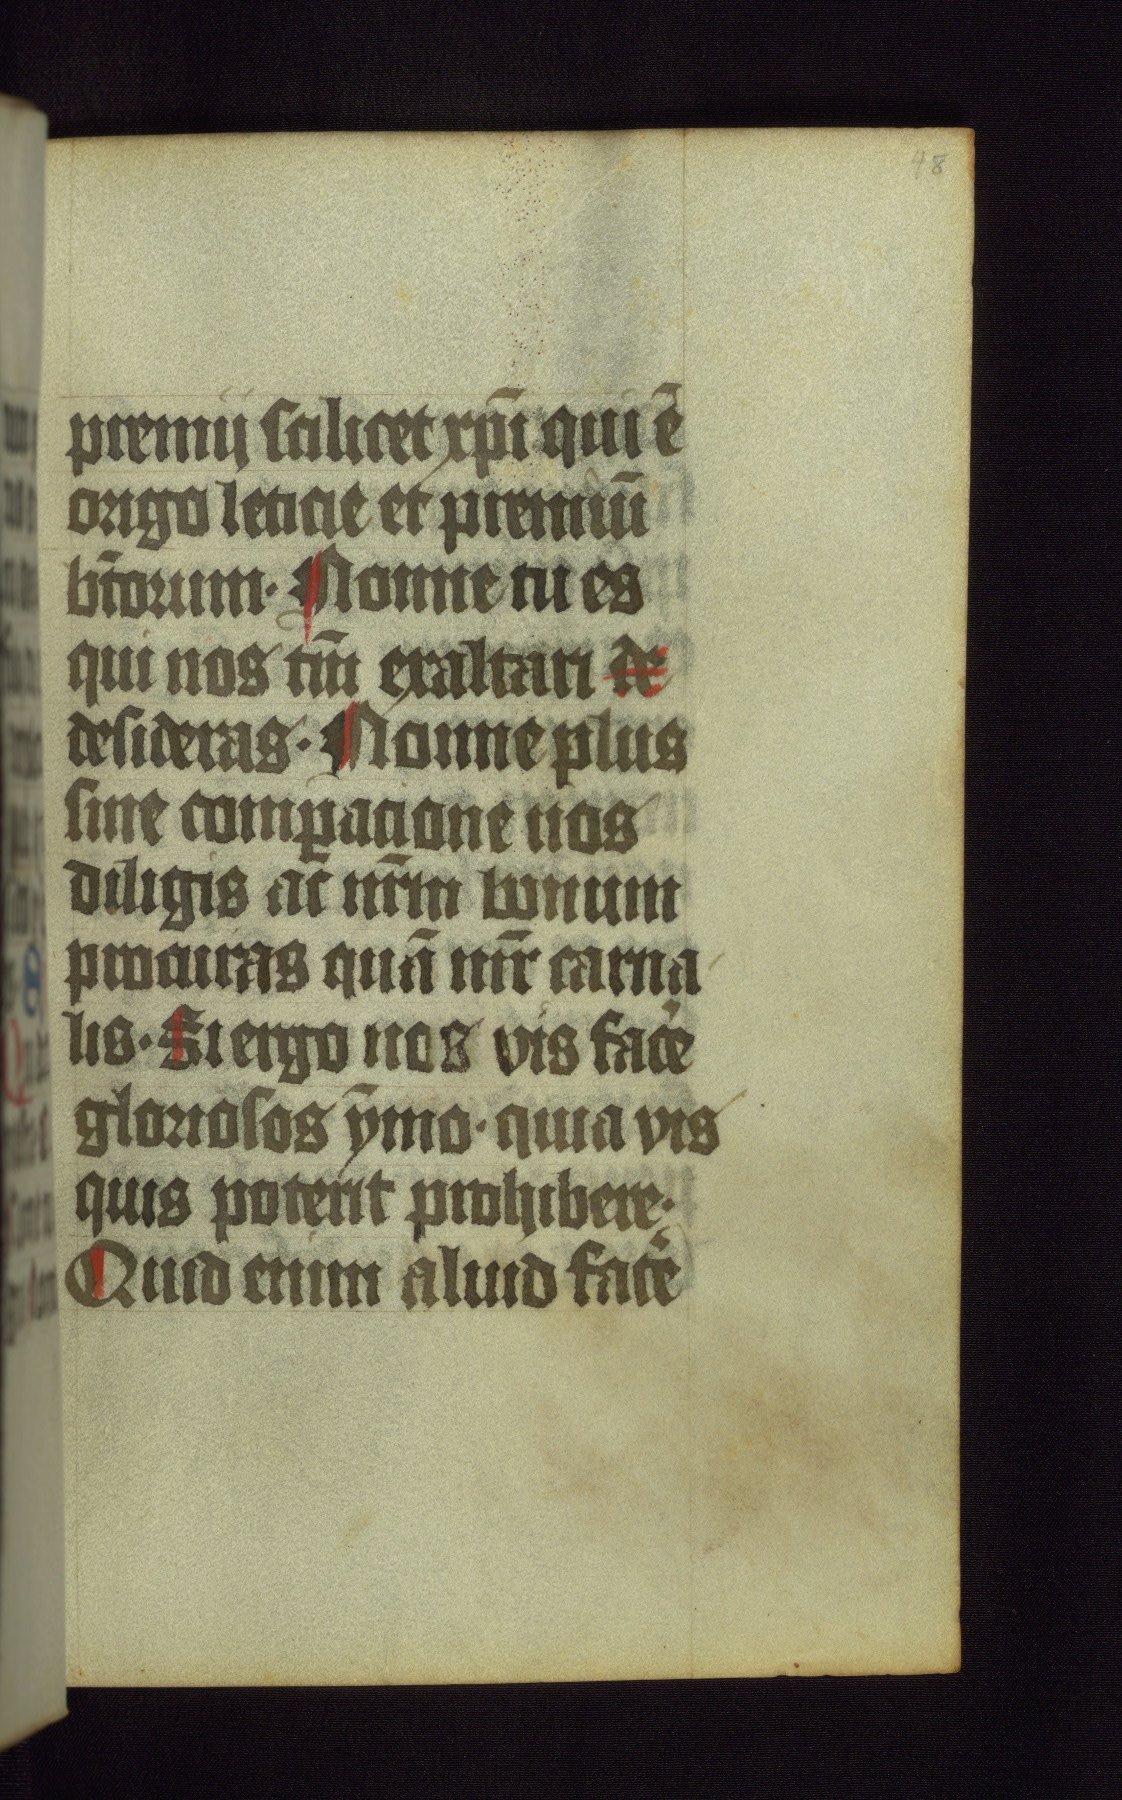 48
premij scilicet xp̄i qui ē
origo leticie et premiū
bt̄orum. Nonne tu es
qui nos tm̄ exaltari de
desideras. Nonne plus
sine comꝑacione nos
diligis ac̄ nr̄m bonum
procuras quā mr̄ carna
lis. Si ergo nos vis facẽ
gloriosos ȳmo. quia vis
quis poterit prohibere.
Quid enim aliud facẽ